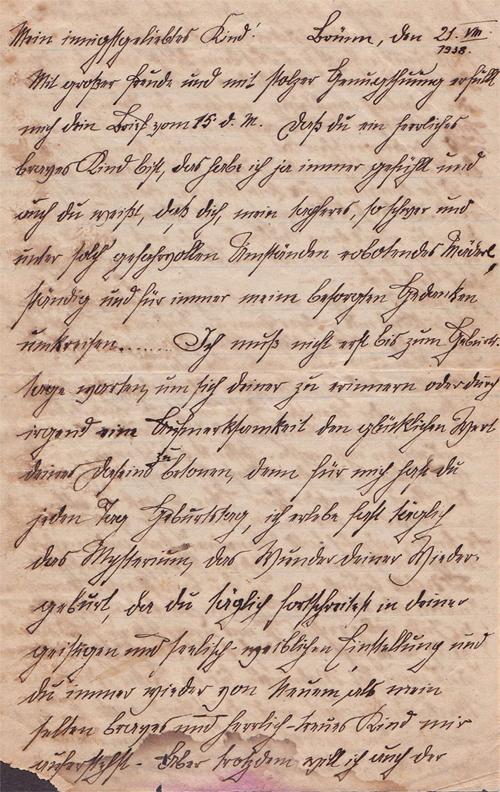 Mein innigstgeliebtes Kind! Brünn, den 21. VIII.
1938.
Mit großer Freude und mit stolzer Genugthuung erfüllt
mich dein Brief vom 15. d. M. Daß du ein herrliches
braves Kind bist, das habe ich ja immer gefühlt und
auch du weißt, daß dich, mein tapferes, so schwer und
unter solch gefahrvollen Umständen robotendes Mäderl,
ständig und für immer meine besorgten Gedanken
umkreisen....... Ich muß nicht erst bis zum Geburts-
tage warten, um sich deiner zu erinnern oder durch
irgend eine Aufmerksamkeit den glücklichen Wert
deines Daseins zu betonen, denn für mich hast du
jeden Tag Geburtstag, ich erlebe fast täglich
das Mysterium, das Wunder deiner Wieder-
geburt, da du täglich fortschreitest in deiner
geistigen und seelisch-weiblichen Einstellung und
du immer wieder von Neuem, als mein
selten braves und herrlich-treues Kind mir
auferstehst. Aber trotzdem will ich auch der